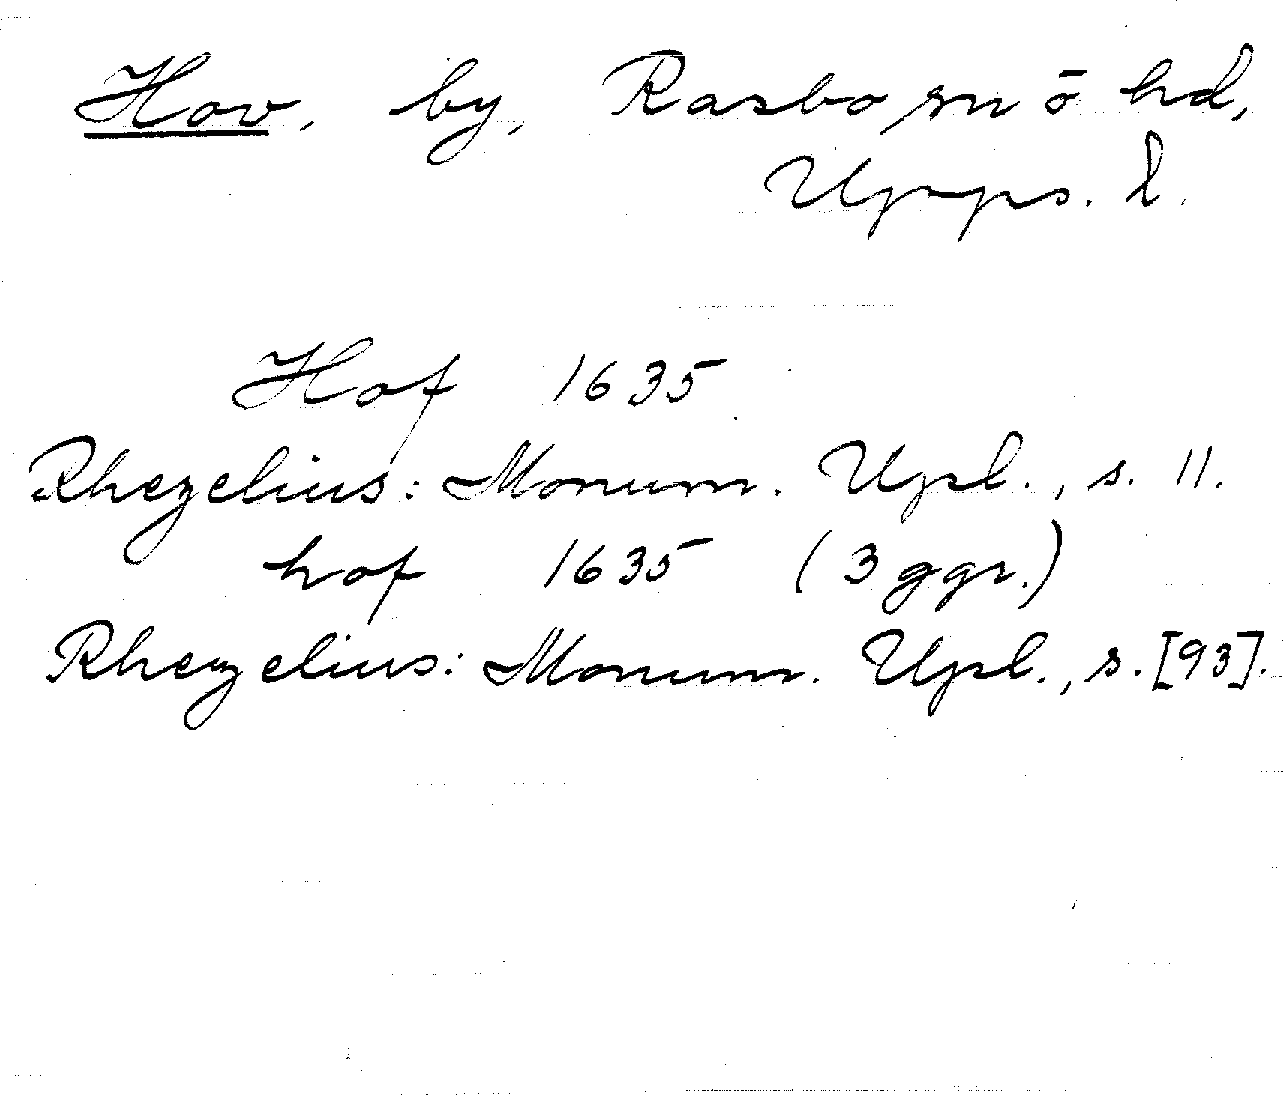 Hov, by, Rasbo sn o hd,
Upps. l.
Hof 1635
Rhezelius: Monum. Upl., s. 11.
hof 1635 (3 ggr.)
Rhezelius: Monum. Upl., s. [93].